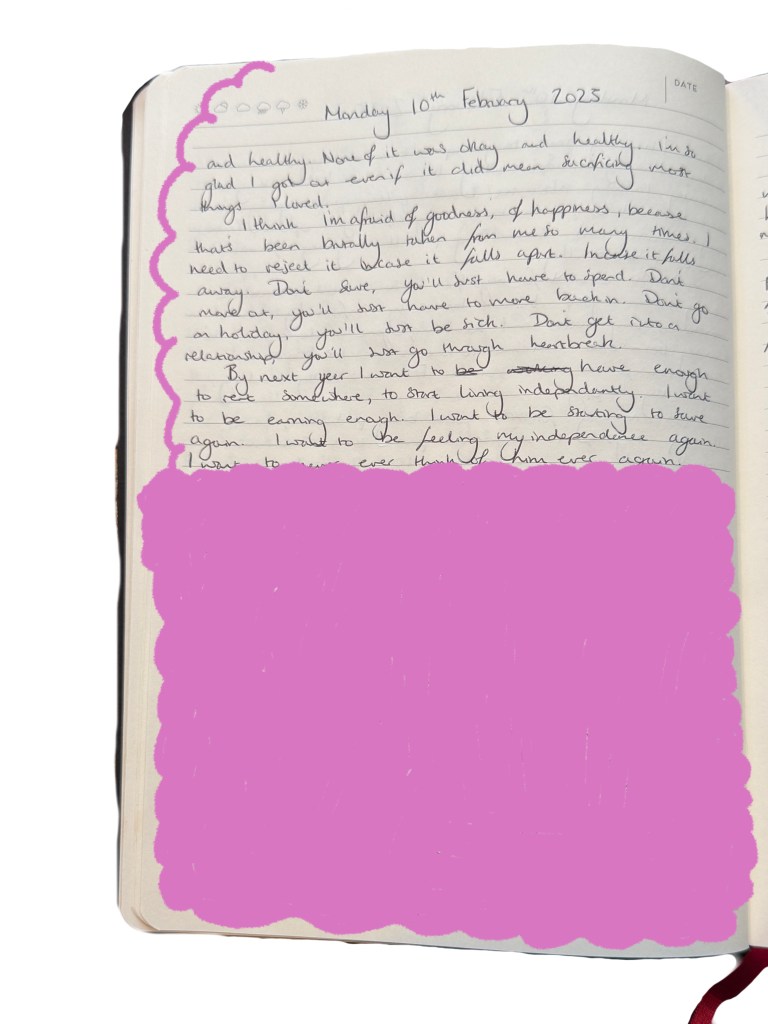 DATE
Monday 10th February 2025
and healthy. None of it was okay and healthy. I'm so
glad I got out even if it did mean sacrificing most
things I loved.
I think I'm afraid of goodness, of happiness, because
that's been brutally taken from me so many times. I
need to reject it incase it falls apart. Incase it falls
away. Don't save, you'll just have to spend. Don't
move out, you'll just have to move back in. Don't go
on holiday, you'll just be sick. Don't get into a
relationship, you'll just go through heartbreak.
By next year I want to be working have enough
to rent somewhere, to start living independantly. I want
to be earning enough. I want to be starting to save
again. I want to be feeling my independence again.
I want to never ever think of him ever again.